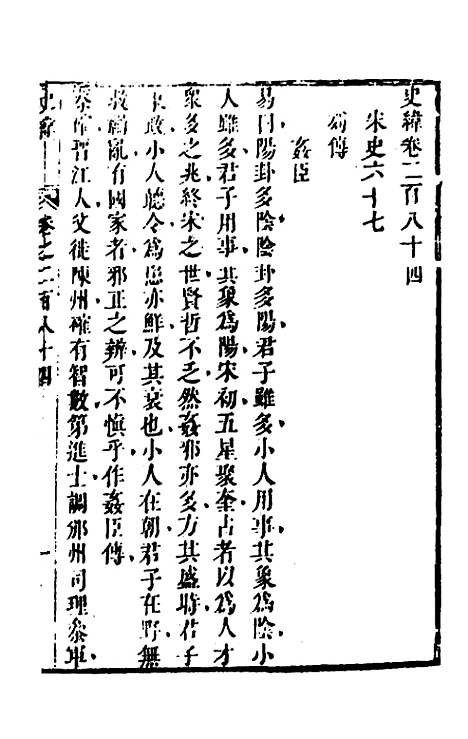 史緯卷二百八十四
宋史六十七
列傳
姦臣
易曰陽卦多陰陰卦多陽君子雖多小人用事其象為陰小
人雖多君子用事其象為陽宋初五星聚奎占者以為人才
衆多之兆終宋之世賢哲不乏然姦邪亦多方其盛時君子
秉政小人聽令為患亦鮮及其衰也小人在朝君子在野無
救禍亂有國家者邪正之辨可不慎乎作姦臣傳
蔡確晉江人父徙陳州確有智數第進士調邠州司理參軍
史緯 卷之二百八十四 一